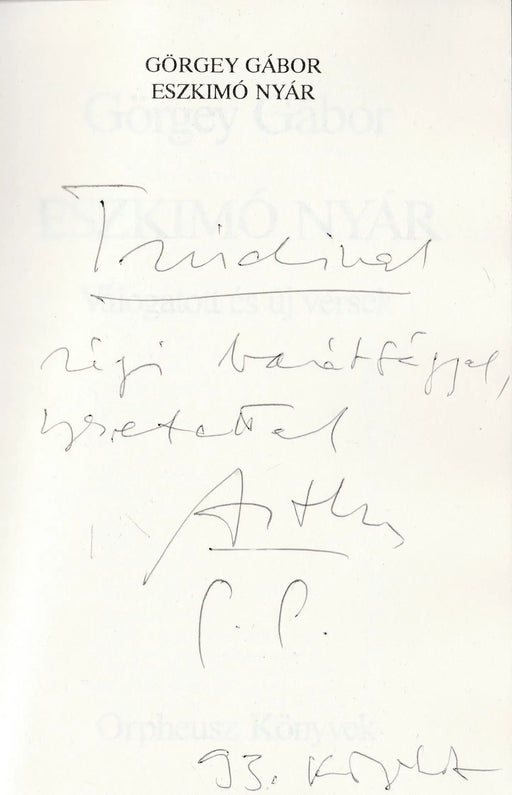 GÖRGEY GÁBOR
ESZKIMÓ NYÁR
Görgey Gábor
ESZKIMÓ NYÁR
Trudinak
Válogatott és új versek
régi barátsággal,
szeretettel
G. G.
Orpheusz Könyvek
93.